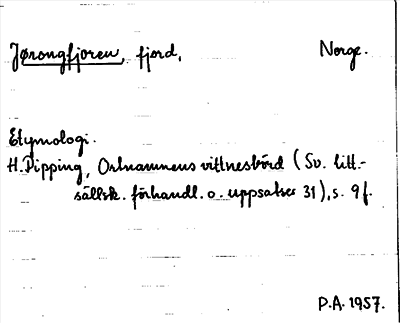 Jørongfjoren, fjord, Norge.
Etymologi.
H. Pipping, Ortnamnens vittnesbörd (Sv. litt.-
sällsk. förhandl. o. uppsatser 31), s. 9f.
P.A. 1957.